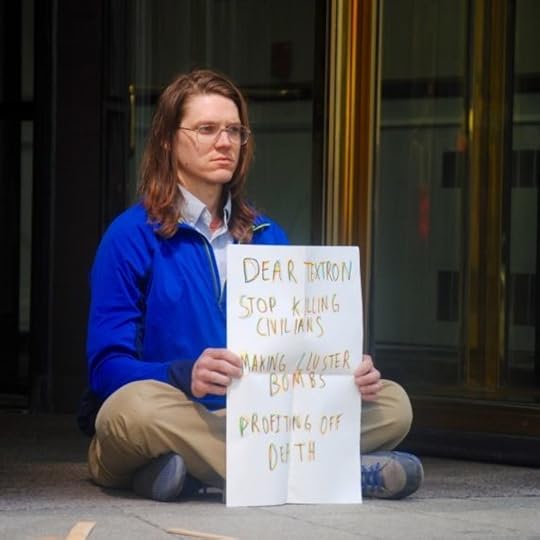 DEAR TEXTRON
STOP KILLING
CIVILIANS
MAKING CLUSTER
BOMBS
PROFITING OFF
DEATH